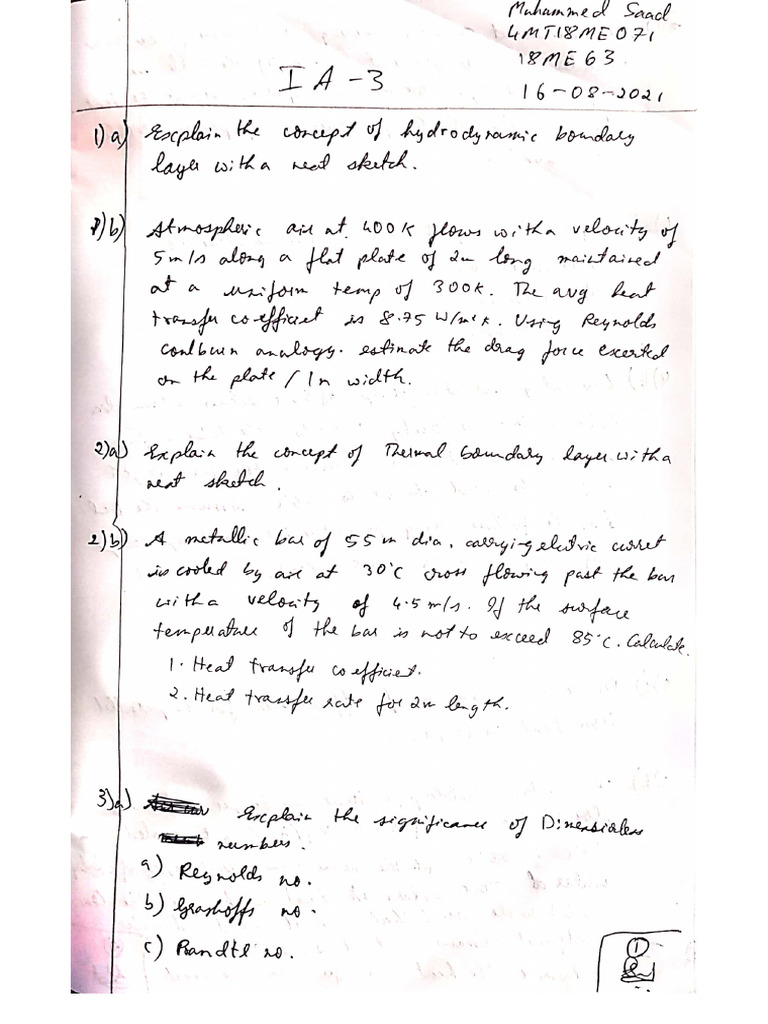 Muhammed Saad
4MT18ME071
18ME63
IA-3
16-08-2021
1)a) Explain the concept of hydrodynamic boundary
layer with a neat sketch.
1)b) Atmospheric air at 400K flows with a velocity of
5m/s along a flat plate of 2m long maintained
at a uniform temp of 300K. The avg heat
transfer coefficient is 8.75 W/m²K. Using Reynolds
coulburn analogy. estimate the drag force exerted
on the plate / 1m width.
2)a) Explain the concept of Thermal boundary layer with a
neat sketch.
2)b) A metallic bar of 55m dia. carrying electric curret
is cooled by air at 30°C cross flowing past the bar
with a velocity of 4.5m/s. If the surface
temperature of the bar is not to exceed 85°C. Calculate.
1. Heat transfer coefficient.
2. Heat transfer rate for 2m length.
3)a) Explain the significance of Dimensionless
numbers.
a) Reynolds no.
b) Grashoffs no.
c) Prandtl no.
1